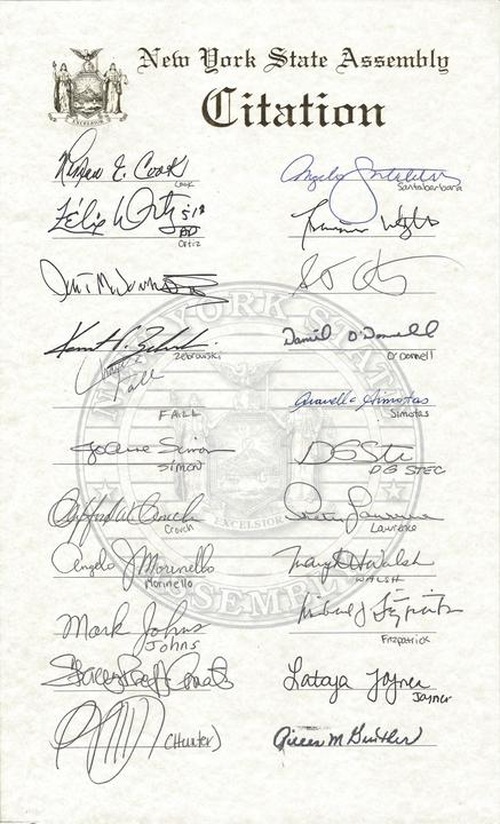 New York State Assembly
Citation
EXCELSIOR
E. Cook
Cook
Angelo Santabarbara
Santabarbara
Félix W Ortiz 51st
AD
Ortiz
Kenneth P. Zebrowski
Zebrowski
Daniel O'Donnell
O'Donnell
Fall
FALL
Aravella Simotas
Simotas
Jo Anne Simon
Simon
DG Stec
DG STEC
Clifford W Crouch
Crouch
Lawrence
Lawrence
Angelo J Morinello
Morinello
Walsh
WALSH
Mark Johns
Johns
Michael J Fitzpatrick
Fitzpatrick
Latoya Joyner
Joyner
(Hunter)
Aileen M Gunther
NEW YORK STATE
EXCELSIOR
ASSEMBLY